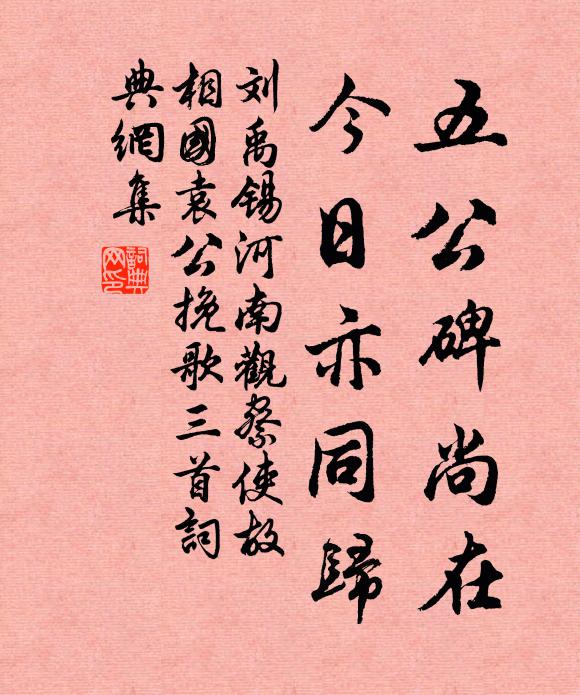 五公碑尚在
今日亦同歸
刘禹锡河南觀察使故
相國袁公挽歌三首詞
典網集
詞典
网印